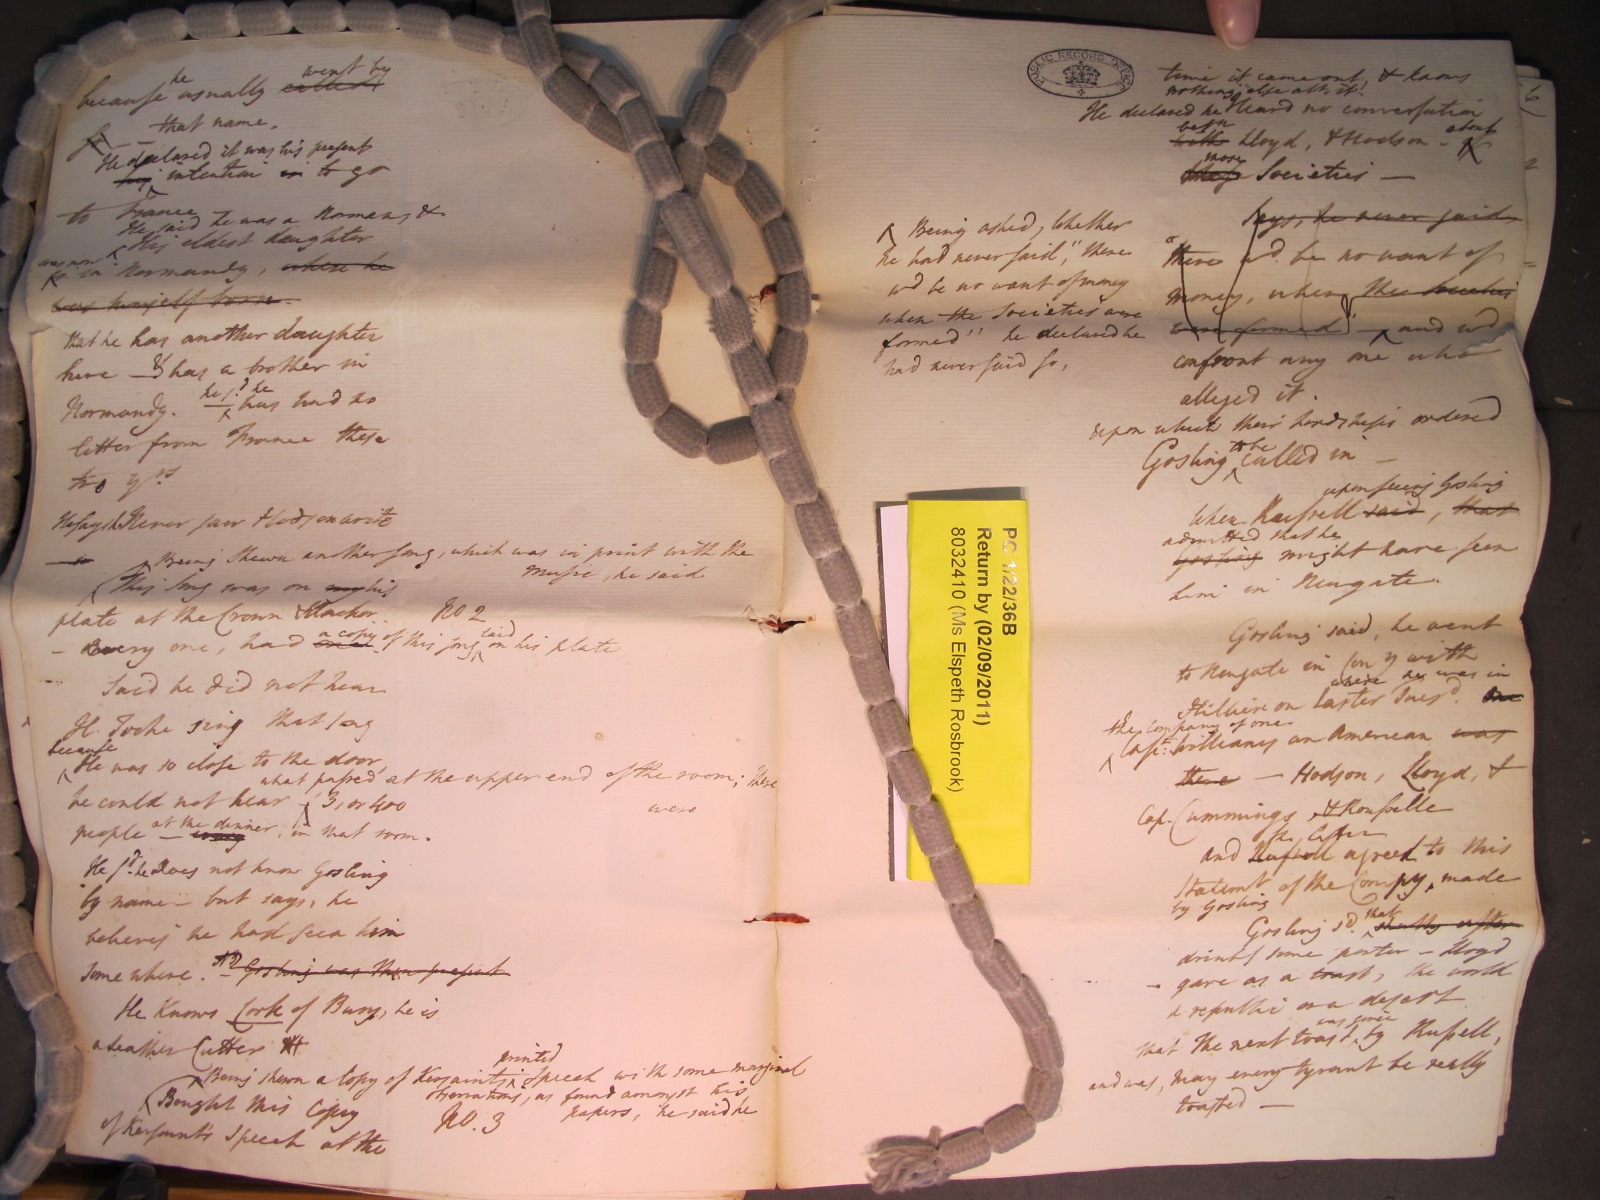 he went by
because usually called
by that name.
He declared it was his present
his intention is to go
to France
He said he was a Norman, &
His eldest daughter
was now
is in Normandy, where he
was himself born.
that he has another daughter
here — & has a brother in
Normandy. he sd. he
has had no
letter from France these
two yrs
He says he Never saw Hodson write
Being shewn another song, which was in print with the
Music, he said
This song was on his
plate at the Crown & Anchor. NO 2
— Every one, had a copy of this song laid on his plate
Said he did not hear
H. Tooke sing that song
because
He was so close to the door,
what passed at the upper end of the room; there
he could not hear — 3, or 400 were
people — at the dinner, in that room.
He sd. he does not know Gosling
by name — but says, he
believes he had seen him
some where. Gosling was then present
He Knows Cook of Bury, he is
a leather Cutter
printed
Being shewn a Copy of Kersaint's Speech with some marginal
Observations, as found amongst his
Bought this Copy NO. 3 papers, he said he
of Kersaint's Speech at the
PUBLIC RECORD OFFICE
time it came out, & knows
nothing else abt. it.
He declared he heard no conversation
betn
with Lloyd, & Hodson — about of
those
these Societies —
Says, he never said
"there wd. be no want of
money, when the Societies
were formed" — and wd
confront any one who
alleged it.
Being asked, Whether
he had never said, "there
wd be no want of money
when the Societies were
formed" he declared he
had never said so,
upon which their Lordships ordered
Gosling to be called in —
upon seeing Gosling
When Russell said, that
admitted that he
Gosling might have seen
him in Newgate.
Gosling said, he went
to Newgate in Compy with
Hillier on Easter Tuesd. where he was in
the company of one
Capt. Williams an American was
there — Hodson, Lloyd, &
Cap. Cummings, & Rousselle
the latter
and Russell agreed to this
Statemt of the Compy, made
by Gosling
Gosling sd. that shortly after
drinkg some porter — Lloyd
— gave as a toast, the world
a republic or a desert
that the next toast was given by Russell,
and was, may every tyrant be really
toasted —
PC 1/22/36B
Return by (02/09/2011)
8032410 (Ms Elspeth Rosbrook)